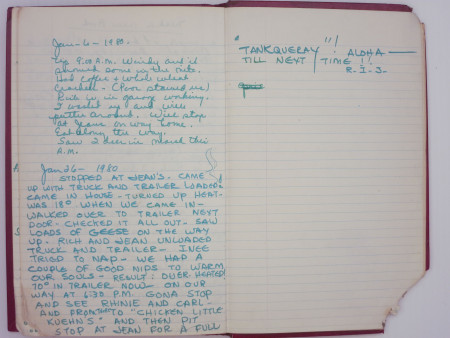 Jan-6-1980.
Up 9:00 A.M. Windy and it
snowed some in the nite.
Had coffee & whole wheat
crackers - (Poor starved us)
Rich in in garage working.
I washed up and will
putter around. Will stop
at Jeans on way home.
Eat along the way.
Saw 2 deer in marsh this
A.M.
Jan 26 - 1980
STOPPED AT JEAN'S. CAME
UP WITH TRUCK AND TRAILER LOADED.
CAME IN HOUSE - TURNED UP HEAT-
WAS 18° WHEN WE CAME IN-
WALKED OVER TO TRAILER NEXT
DOOR - CHECKED IT ALL OUT - SAW
LOADS OF GEESE ON THE WAY
UP. RICH AND JEAN UNLOADED
TRUCK AND TRAILER - INEE
TRIED TO NAP - WE HAD A
COUPLE OF GOOD NIPS TO WARM
OUR SOULS - RESULT: OVER HEATED!
70° IN TRAILER NOW - ON OUR
WAY AT 6:30 P.M. GONA STOP
AND SEE RHINIE AND CARL -
AND FROM TO "CHICKEN LITTLE
KUEHN'S" AND THEN PIT
STOP AT JEAN FOR A FULL
TANKQUERAY!! ALOHA
TILL NEXT TIME!!
R-I-J